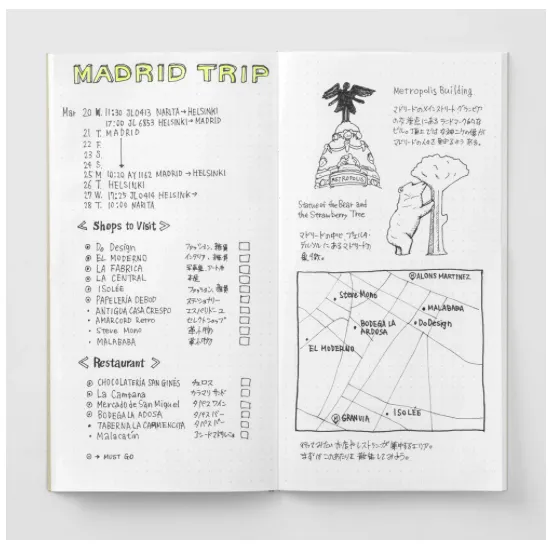 MADRID TRIP
Mar 20 W. 11:30 JL0413 NARITA→HELSINKI
17:20 JL6853 HELSINKI→MADRID
21 T. MADRID
22 F.
23 S.
24 S.
25 M 10:20 AY1162 MADRID→HELSINKI
26 T. HELSINKI
27 W. 17:25 JL0414 HELSINKI→
28 T. 10:00 NARITA
≪ Shops to Visit ≫
Do Design ファッション、雑貨
EL MODERNO インテリア、雑貨
LA FÁBRICA 写真集、アート本
LA CENTRAL 本屋
ISOLÉE ファッション、雑貨
PAPELERÍA DEBOD ステショナリー
ANTIGUA CASA CRESPO エスパドリーユ
AMARCORD Retro セレクトショップ
Steve Mono 革小物
MALABABA 革小物
≪ Restaurant ≫
CHOCOLATERÍA SAN GINÉS チュロス
La Campana カラマリサンド
Mercado de San Miguel タパス ワイン
BODEGA LA ADOSA タパスバー
TABERNA LA CARMENCITA タパスバー
Malacatín
◎ → MUST GO
Metropolis Building
マドリードのメインストリート、グランビア
METROPOLIS
Statue of the Bear and
the Strawberry Tree
マドリードの中心、プエルタ・
デル・ソルにあるマドリードの
象徴。
ALONS MARTINEZ
Steve Mono
MALABABA
BODEGA LA
ARDOSA
Do Design
EL MODERNO
ISOLÉE
GRANVIA
行ってみたいお店やレストランが集中するエリア。
まずはこのあたりを散策してみよう。